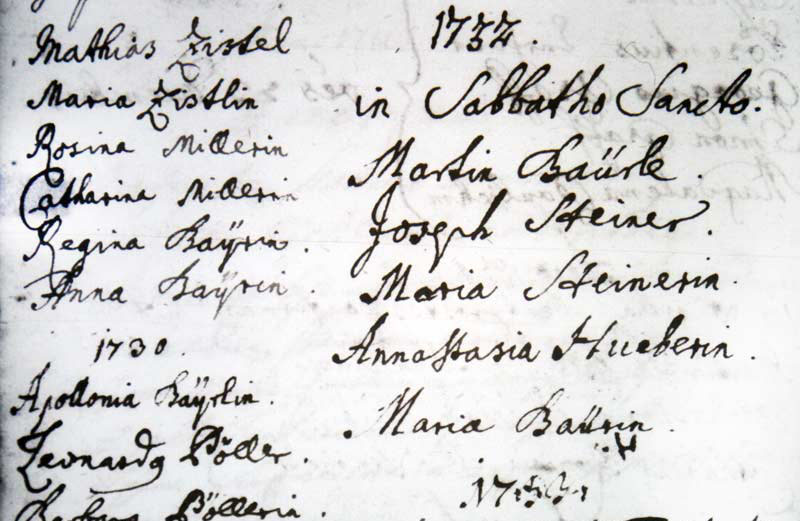 Mathias Zistel
Maria Zistlin
Rosina Millerin
Catharina Millerin
Regina Baÿrin.
Anna Baÿrin.
1730.
Apollonia Baÿrlin.
Leonardg Pöller.
Pöllerin.
1732.
in Sabbatho Sancto.
Martin Baürle.
Joseph Steiner.
Maria Steinerin.
Annastasia Hueberin.
Maria Baürin.